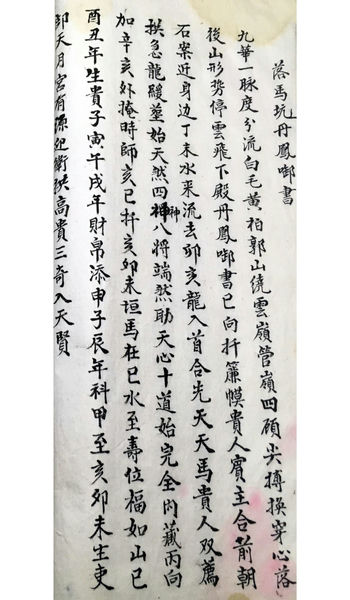 落馬坑丹鳳啣書
九華一脉度分流白毛黃柏郭山繞雲嶺管嶺四顧尖搏換穿心落
後山形勢停雲飛下殿丹鳳啣書已向扦簾幙貴人賓主合前朝
石案近身边丁未水来流去卯亥龍入首合先天天馬貴人双薦
拱急龍緩葬始天然四神八將端然助天心十道始完全内藏丙向
加辛亥外掩時師亥巳扦亥卯未垣馬在巳水至壽位福如山巳
酉丑年生貴子寅午戌年財帛添申子辰年科甲至亥卯未生吏
卯天月宮有源迎衛拱高貴三奇入天賢